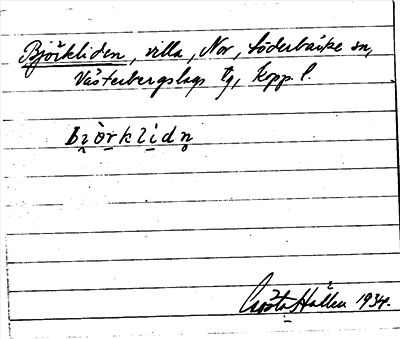 Björkliden, villa, Nor, Söderbärke sn,
Västerbergslags tg, Kopp. l.
bi̯ö̀rklidn̥
Gösta Hallén 1934.